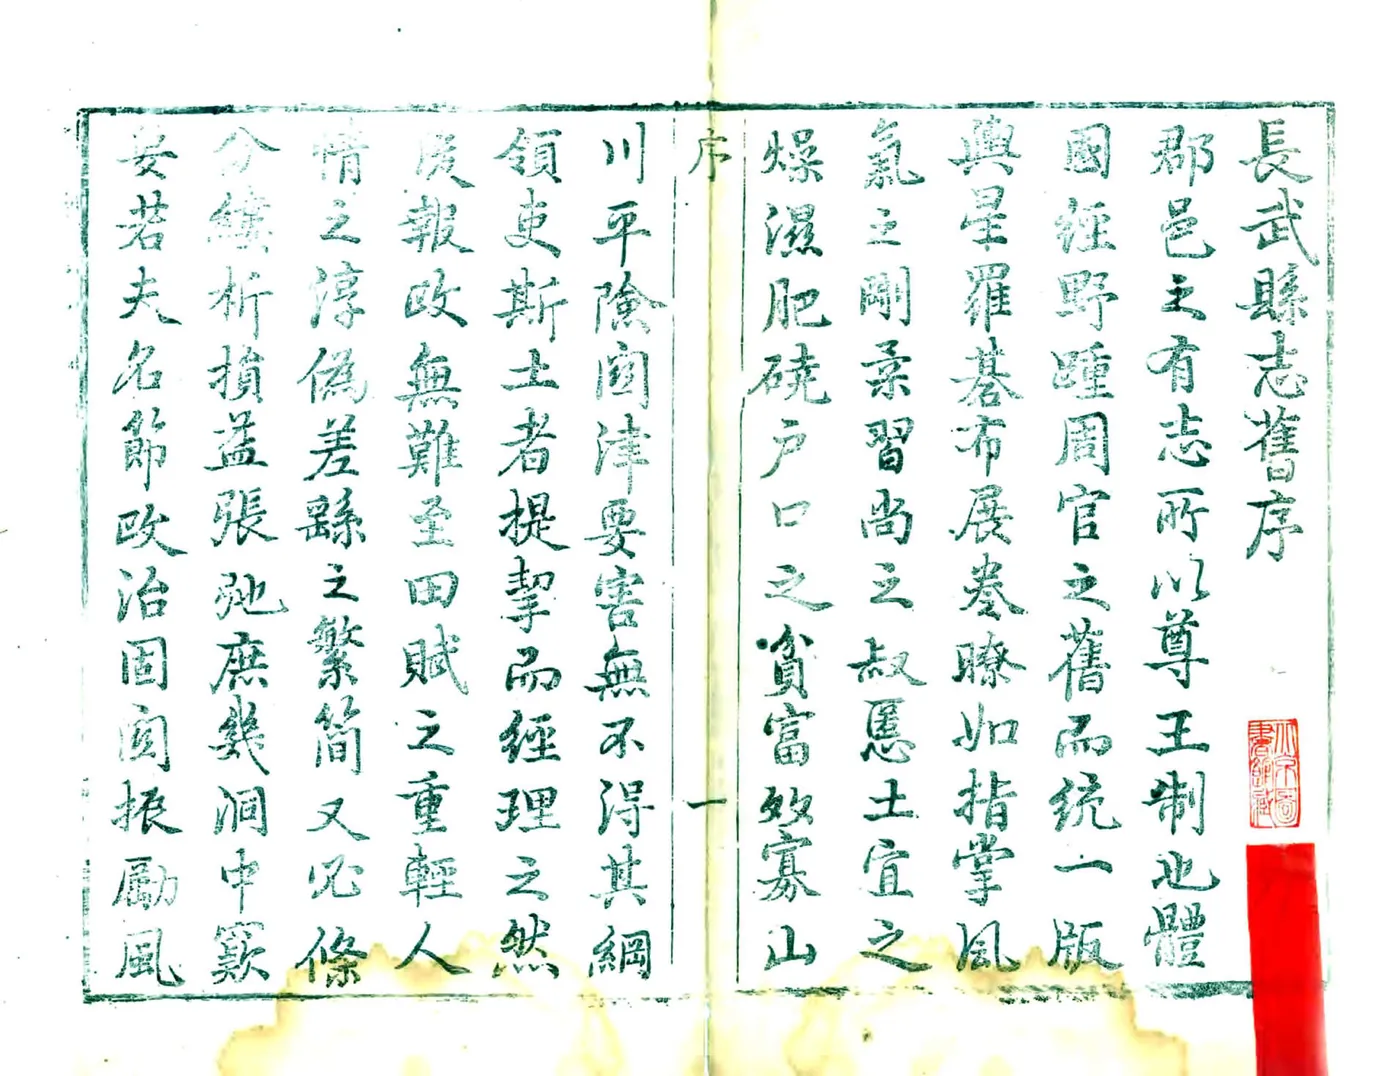 長武縣志舊序
郡邑之有志所以尊王制也體
國經野踵周官之舊而統一版
輿星羅碁布展卷瞭如指掌風
氣之剛柔習尚之淑慝土宜之
燥濕肥磽戶口之貧富眾寡山
序
一
川平險関津要害無不得其綱
領吏斯土者提挈而經理之然
後報政無難至田賦之重輕人
情之淳偽差繇之繁簡又必條
分縷析損益張弛庶幾洞中窾
要若夫名節政治固関振勵風